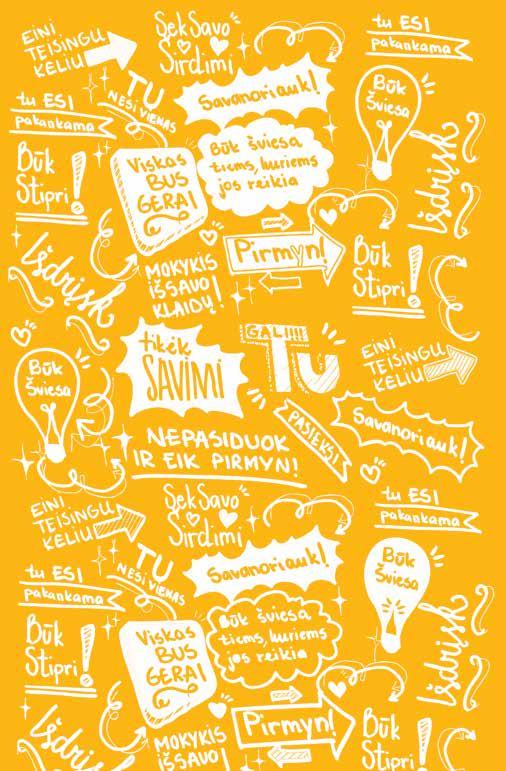 EINI
TEISINGU
KELIU
Sek Savo
Širdimi
tu ESI
pakankama
TU
NESI VIENAS
Savanoriauk!
Būk
Šviesa
tu ESI
pakankama
Būk
Stipri!
Viskas
BUS
GERAI
Būk šviesa
tiems, kuriems
jos reikia
Išdrįsk
Pirmyn!
Būk
Stipri!
Išdrįsk
MOKYKIS
IŠ SAVO
KLAIDŲ!
GALI!!!
TU
tikėk
SAVIMI
EINI
TEISINGU
KELIU
Būk
Šviesa
PASIEKSI
Savanoriauk!
NEPASIDUOK
IR EIK PIRMYN!
EINI
TEISINGU
KELIU
Sek Savo
Širdimi
tu ESI
pakankama
TU
NESI VIENAS
Savanoriauk!
Būk
Šviesa
tu ESI
pakankama
Būk
Stipri!
Viskas
BUS
GERAI
Būk šviesa
tiems, kuriems
jos reikia
Išdrįsk
Pirmyn!
Būk
Stipri!
Išdrįsk
MOKYKIS
IŠ SAVO